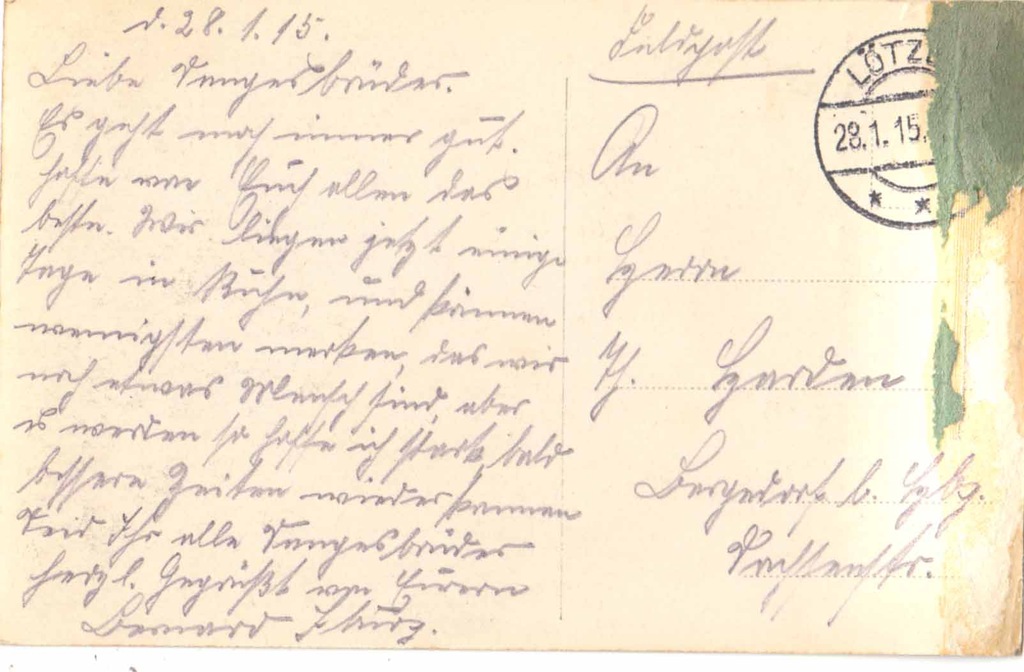 d. 28.1.15.
Liebe Sangesbrüder.
Es geht noch immer gut.
hoffe von Euch allen das
beste. Wir liegen jetzt einige
Tage in Ruhe, und können
wennigsten merken, das wir
noch etwas Mensch sind, aber
es werden so hoffe ich stark bald
bessere Zeiten wieder kommen
Seid Ihr alle Sangesbrüder
herzl. Gegrüßt von Eurem
Bernard
Feldpost
LÖTZ
28.1.15.
An
Herrn
Th. Harden
Bergedorf b. Hbg.
Sachsenstr.